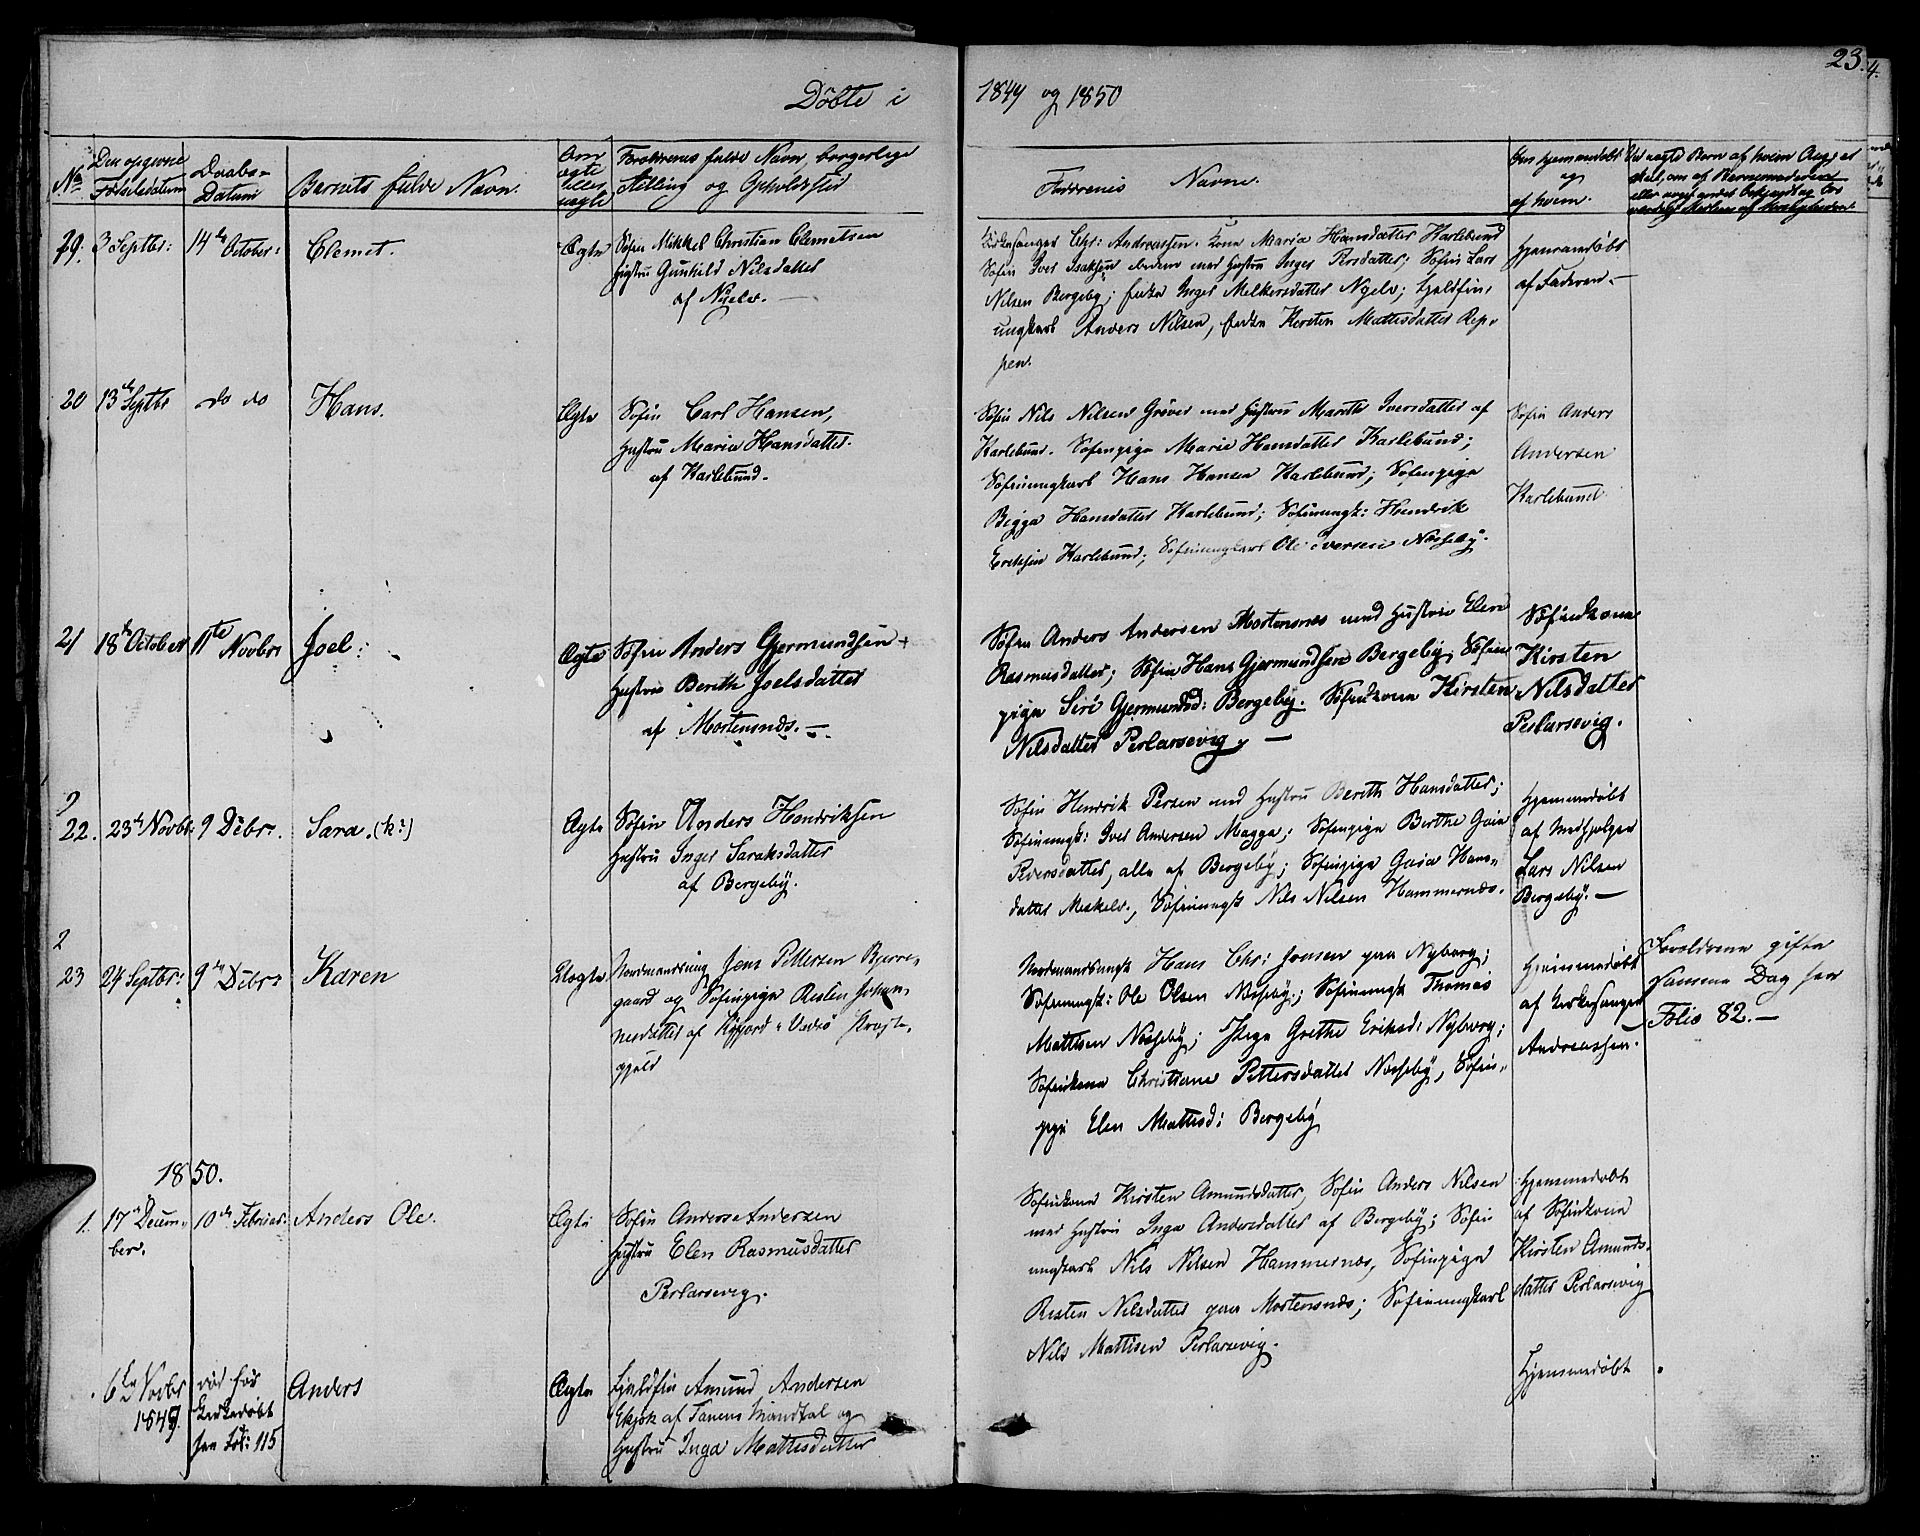 23.
4.
Døbte i 1849 og 1850
No
Den opgivne Fødselsdatum
Daabs-Datum
Barnets fulde Navn.
Om ægte eller uægte
Forældrenes fulde Navn, borgerlige Stilling og Opholdsted
Faddernes Navne.
Om hjemmedøbt og af hvem.
19. 3 Septbr: 14de October: Clemet. Ægte
Søfin Mikkel Christian Clemetsen
Hustru Gunhild Nilsdatter
af Nyelv. —
Kirkesanger Chr: Andreassen. Kone Maria Hansdatter Karlebund
Søfin Iver Isaksen ibidem med Hustru Inger Persdatter; Søfin Lars
Nilsen Bergeby; Inger Melkersdatter Nyelv; Fjeldfin,
ungkarl Anders Nilsen, Kirsten Mattisdatter Rep,,
pen.
Hjemmedøbt
af Faderen. —
20 13de Septbr do do Hans. Ægte
Søfin Carl Hansen,
Hustru Maria Hansdatter.
af Karlebund.
Søfin Nils Nilsen Grøver med Hustru Marith Iversdatter af
Karlebund. Søfinpige Marie Hansdatter Karlebund;
Søfinungkarl Hans Hansen Karlebund; Søfinpige
Bigga Hansdatter Karlebund; Søfinungk: Hendrik
Eriksen Karlebund; Søfinungkarl Ole Iversen Næsseby.
Søfin Anders
Andersen
Karlebund
21 18de October 11te Novbr Joel: Ægte
Søfin Anders Gjermundsen
Hustru Berith Joelsdatter
af Mortensnæs. —
Søfin Anders Andersen Mortensnæs med Hustru Elen
Rasmusdatter; Søfin Hans Gjermundsen Bergeby, Søfin
pige Siri Gjermundsd: Bergeby. Søfinkone Kirsten
Nilsdatter Perlarsevig. —
Søfinkone
Kirsten
Nilsdatter
Perlarsevig.
22. 23de Novbr. 9 Dcbr. Sara. (k:) Ægte
Søfin Anders Hendriksen
Hustru Inger Saraksdatter
af Bergeby.
Søfin Hendrik Persen med Hustru Berith Hansdatter;
Søfinungk: Iver Andersen Magga; Søfinpige Berthe Gaia
Iversdatter, alle af Bergeby; Søfinpige Gaia Hans-
datter Meskelv., Søfinungk Nils Nilsen Hammernæs.
Hjemmedøbt
af Medhjelper
Lars Nilsen
Bergeby. —
2
23 24 Septbr: 9de Dcbr: Karen Uægte
Nordmandsung Jens Pettersen Bjerre-
gaard og Søfinpige Resten Johan,
nesdatter af Kjøfjord i Vadsø Præste,
gjeld
Nordmandsungk Hans Chr: Jensen paa Nyborg;
Søfinungk: Ole Olsen Næsseby; Søfinungk Thomas
Mattisen Næsseby; Pige Grethe Eriksd: Nyborg;
Søfinkone Christiane Pettersdatter Næsseby, Søfin-
pige Elen Mattisd: Bergeby
Hjemmedøbt
af Kirkesanger
Andreassen.
Forældrene gifte
samme Dag see
Folio 82. —
1850.
1. 17 Decem,
ber. 10de Februar: Anders Ole. Ægte
Søfin Anders Andersen
Hustru Elen Rasmusdatter
Perlarsevig.
Søfinkone Kirsten Amundsdatter, Søfin Anders Nilsen
med Hustru Inga Andersdatter af Bergeby; Søfin
ungkarl Nils Nilsen Hammernæs, Søfinpige
Resten Nilsdatter paa Mortensnæs; Søfinungkarl
Nils Mattisen Perlarsevig.
Hjemmedøbt
af Søfinkone
Kirsten Amunds-
datter Perlarsevig
6te Novbr
1849. død før
Kirkedøbt
see Fol: 115
Anders Ægte
Fjeldfin Amund Andersen
af Tanens Mandtal og
Hustru Inga Mattisdatter
Hjemmedøbt